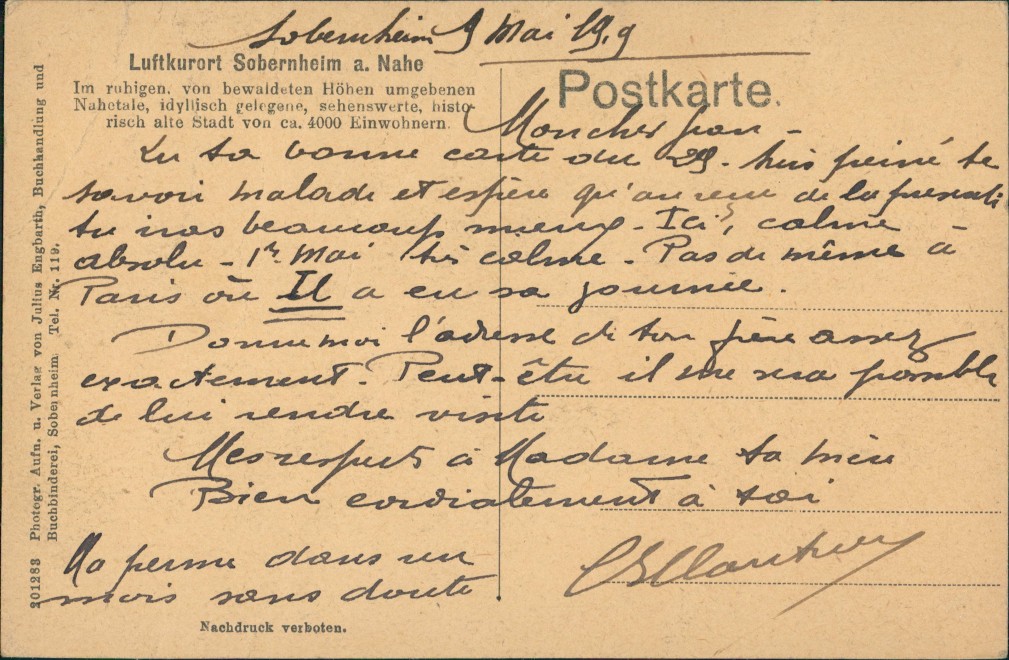 Sobernheim 9 Mai 1919
Luftkurort Sobernheim a. Nahe
Im ruhigen, von bewaldeten Höhen umgebenen
Nahetale, idyllisch gelegene, sehenswerte, histo-
risch alte Stadt von ca. 4000 Einwohnern.
Postkarte.
Mon cher Jean -
Lu ta bonne carte du 29. Suis peiné te
savoir malade et espère qu'au reçu de la présente
tu iras beaucoup mieux - Ici, calme
absolu - 1er Mai très calme. Pas de même à
Paris où Il a eu sa journée.
Donne moi l'adresse de ton père assez
exactement. Peut-être il me sera possible
de lui rendre visite
Mes respects à Madame ta mère
Bien cordialement à toi
Ma perme dans un
mois sans doute
201283 Photogr. Aufn. u. Verlag von Julius Engbarth, Buchhandlung und
Buchbinderei, Sobernheim Tel. Nr. 119.
Nachdruck verboten.